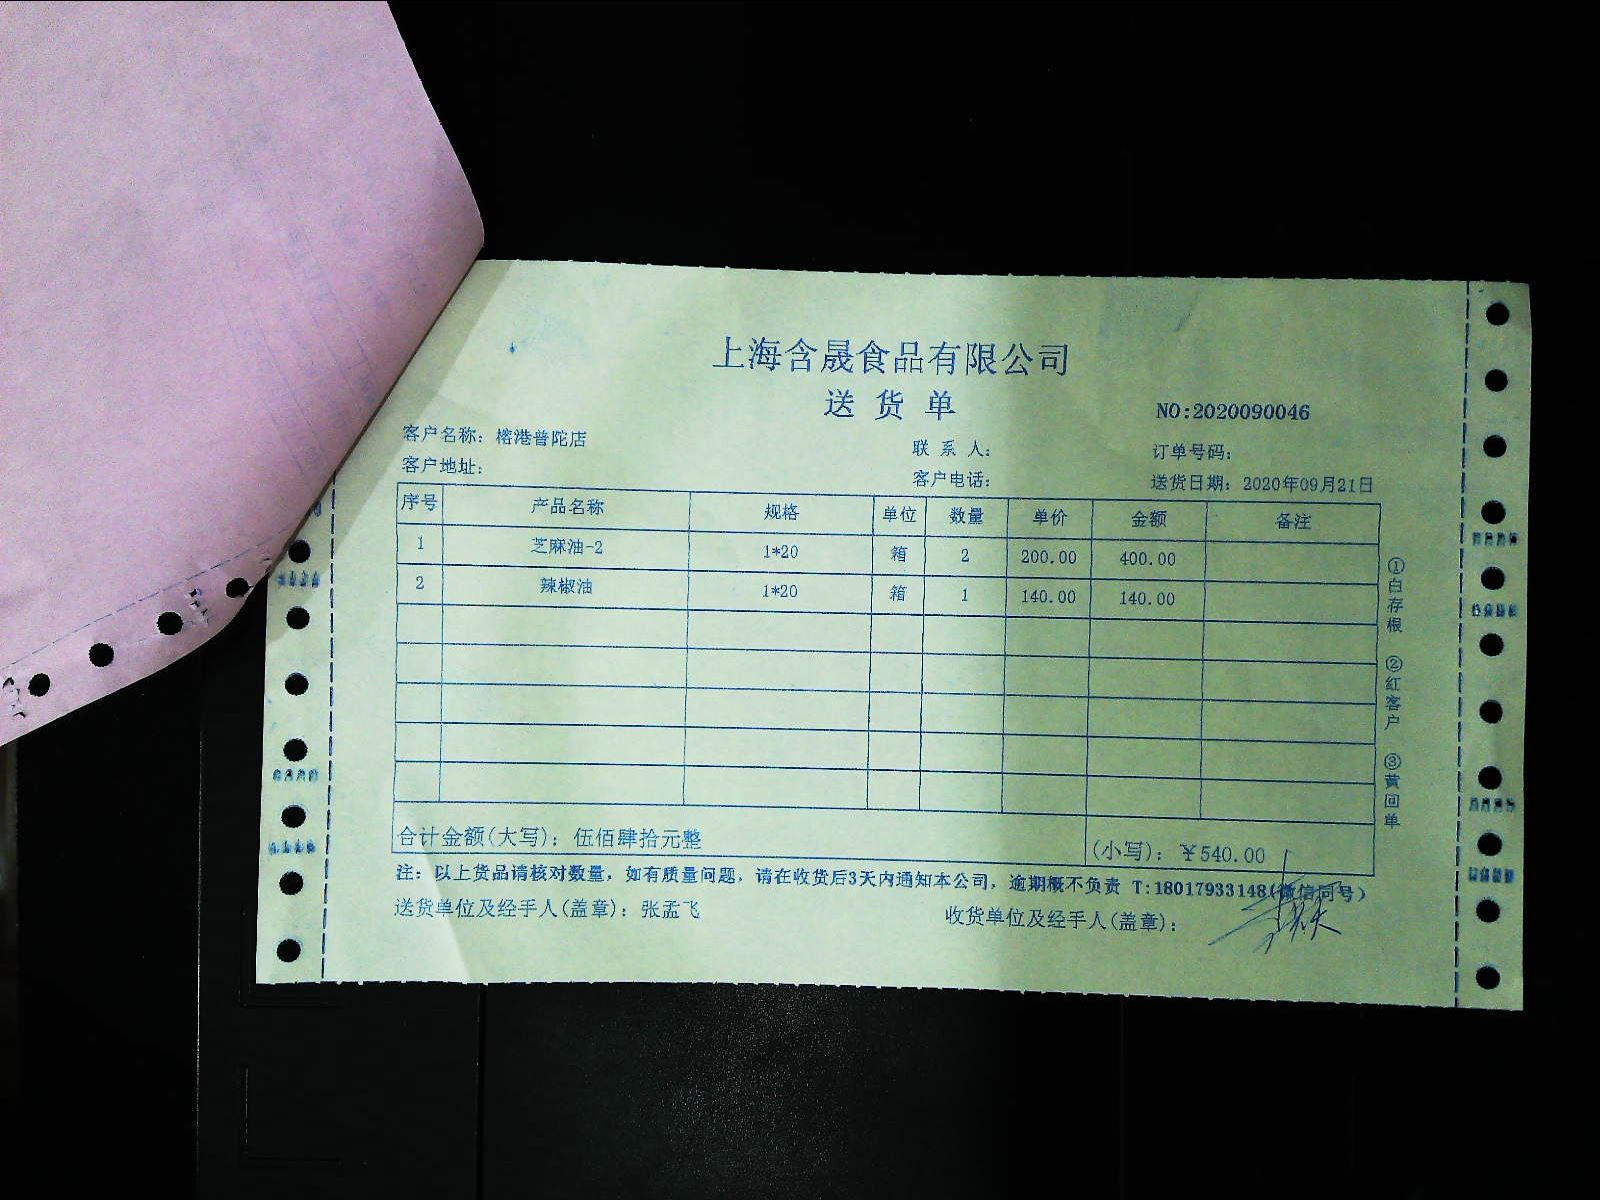 上海含晟食品有限公司
送 货 单
NO:2020090046
客户名称: 榕港普陀店 联 系 人: 订单号码:
客户地址: 客户电话: 送货日期: 2020年09月21日
序号 产品名称 规格 单位 数量 单价 金额 备注
1 芝麻油-2 1*20 箱 2 200.00 400.00
2 辣椒油 1*20 箱 1 140.00 140.00
合计金额(大写): 伍佰肆拾元整 (小写): ¥540.00
注: 以上货品请核对数量, 如有质量问题, 请在收货后3天内通知本公司, 逾期概不负责 T:18017933148(微信同号)
送货单位及经手人(盖章): 张孟飞 收货单位及经手人(盖章):
①白存根 ②红客户 ③黄回单